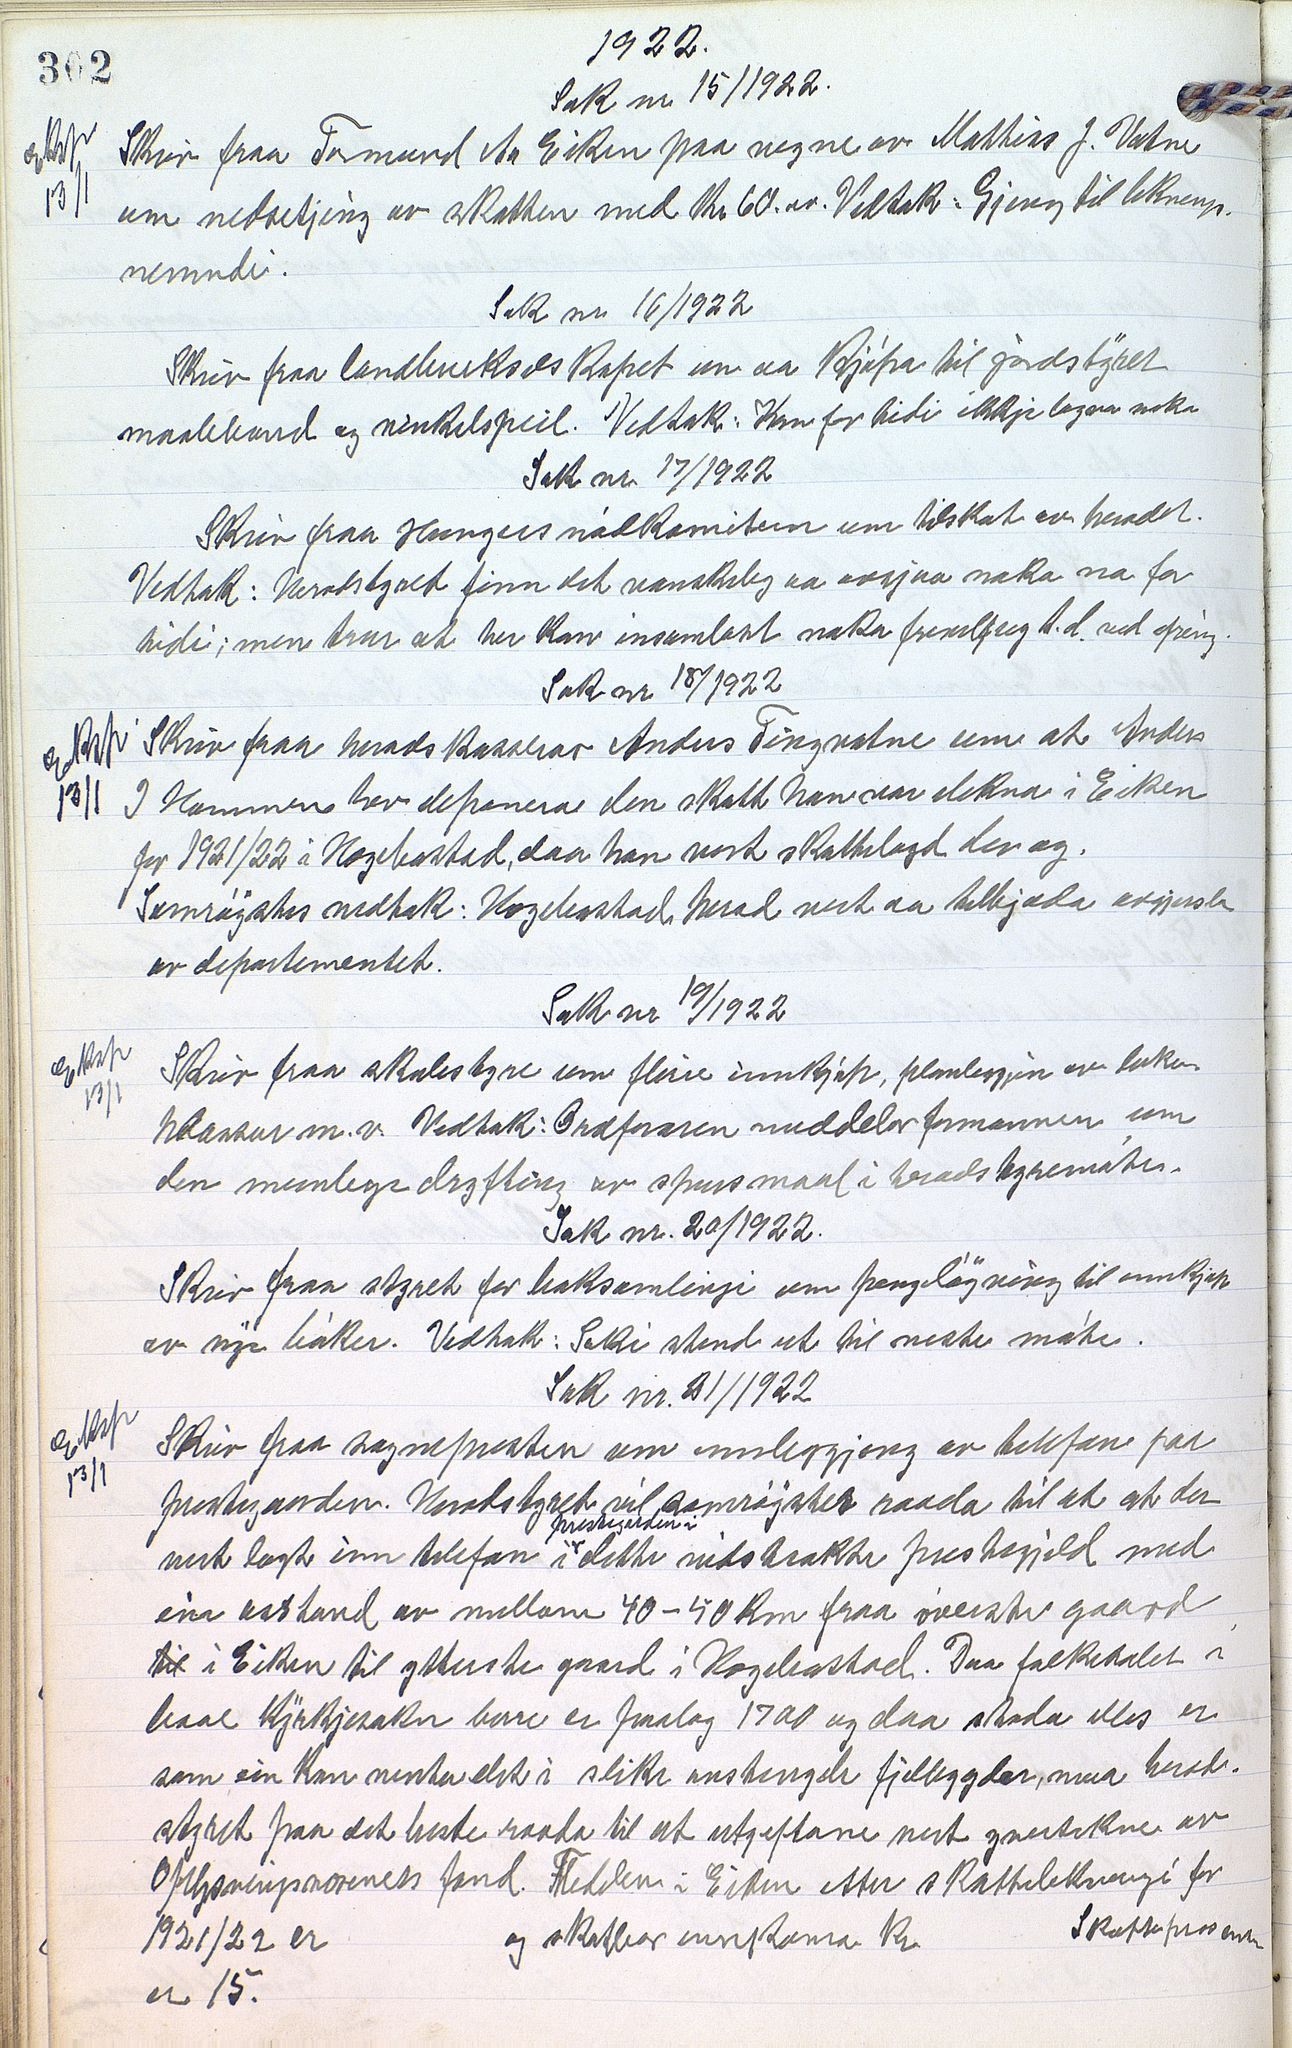 302
1922.
Sak nr 15/1922.
Eksp 13/1
Skriv fraa Tormund Aa Eiken paa vegne av Mathias J. Vatne
um nedsetjing av skatten med kr 60. av. Vedtak: Gjeng til liknings-
nemndi.
Sak nr 16/1922
Skriv fraa landbruksselskapet um aa kjøpa til jordstyret
maaleband og vinkelspeil. Vedtak: Kan for tidi ikkje løyva noko
Sak nr. 17/1922
Skriv fraa Hungersnødkomiteen um tilskot av heradet.
Vedtak: Heradstyret finn det vanskeleg aa avsjaa noko no for
tidi; men trur at her kan innsamlast noko frivilljug t.d. ved
Sak nr 18/1922
Eksp 13/1
Skriv fraa heradskasserar Anders Tingvatne um at Anders
I Hommen hev deponera den skatt han var likna i Eiken
for 1921/22 i Hægebostad, daa han vert skattelagd der og.
Samrøystes vedtak: Hægebostad herad vert aa tilbjoda avgjersla
av departementet.
Sak nr 19/1922
Eksp 13/1
Skriv fraa skulestyre um flere innkjøp, planleggjing av
klassar m.v. Vedtak: Ordføraren meddeler formannen um
den munlege drøfting av spursmaal i heradstyremøte.
Sak nr. 20/1922.
Skriv fraa styret for boksamlingi um pengeløyving til innkjøp
av nye bøker. Vedtak: Saki stend ut til neste møte.
Sak nr. 21/1922
Eksp 13/1
Skriv fraa sognepresten um innleggjing av telefon paa
prestegarden. Heradstyret vil samrøystes raada til at at der
prestegarden i
vert lagt inn telefon i dette vidstrakte prestegjeld med
ein avstand av millom 40-50 km fraa øverste gaard
til i Eiken til ytterste gaard i Hægebostad. Daa folketalet i
baae kyrkjesokn berre er paalag 1700 og daa stoda elles er
som ein kan venta det i slike avstengde fjellbygder, maa herad-
styret paa det beste raada til at utgiftane vert yvertekne av
Oplysningsvæsenets fond. Fteddelen i Eiken etter skattelikningi for
1921/22 er og skattbar innkoma kr. Skatteprosenten
er 15.